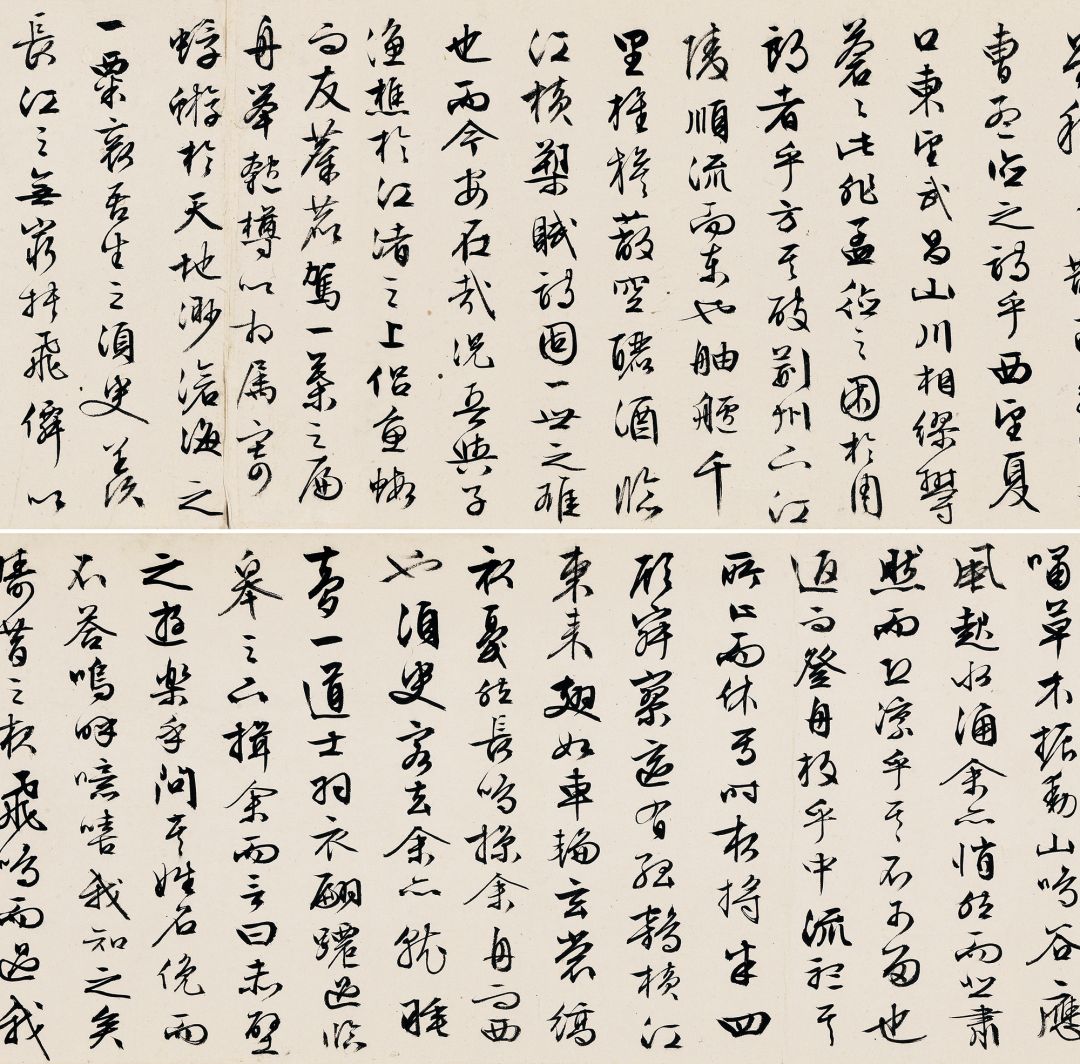 曹孟德之詩乎西望夏
口東望武昌山川相繆鬱
蒼々此非孟德之困於周
郎者乎方其破荆州下江
陵順流而東也舳艫千
里旌旗蔽空釃酒臨
江橫槊賦詩固一世之雄
也而今安在哉況吾與子
漁樵於江渚之上侶魚蝦
而友麋鹿駕一葉之扁
舟舉匏樽以相屬寄
蜉蝣於天地渺滄海之
一粟哀吾生之須臾羨
長江之無窮挾飛僊以
嘯草木振動山鳴谷應
風起水涌余亦悄然而悲肅
然而恐凜乎其不可留也
返而登舟放乎中流聽其
所止而休焉時夜將半四
顧寂寥適有孤鶴橫江
東來翅如車輪玄裳縞
衣戛然長鳴掠余舟而西
也須臾客去余亦就睡
夢一道士羽衣翩躚過臨
皋之下揖余而言曰赤壁
之遊樂乎問其姓名俛而
不答嗚呼噫嘻我知之矣
疇昔之夜飛鳴而過我